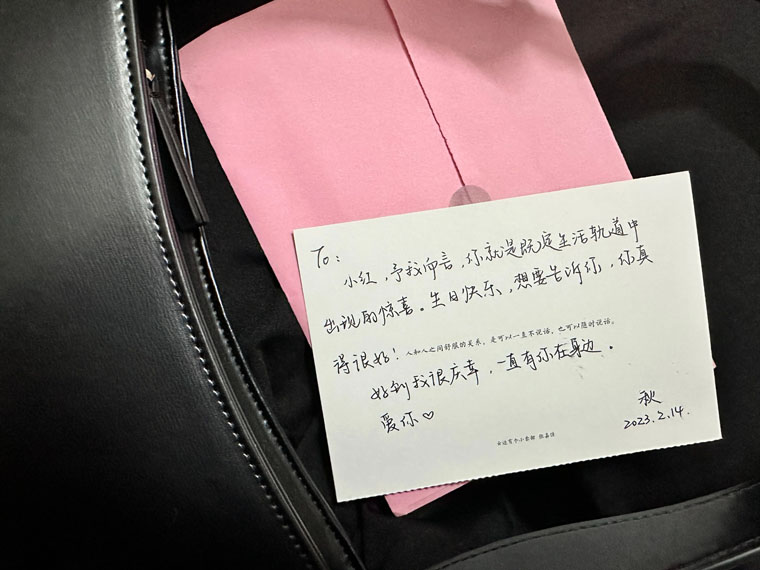 To:
小红,予我而言,你就是既定生活轨道中
出现的惊喜。生日快乐,想要告诉你,你真
得很好!人和人之间舒服的关系,是可以一直不说话,也可以随时说话。
好到我很庆幸,一直有你在身边。
爱你♡
秋
2023.2.14.
云边有个小卖部 张嘉佳